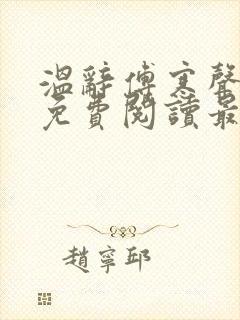 溫辭傅寒聲
免費閱讀最
趙寧邱